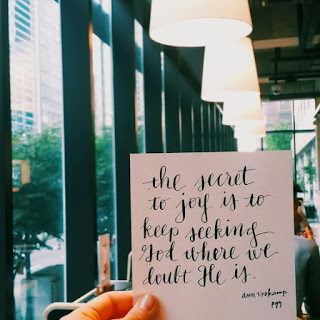 the secret
to joy is to
keep seeking
God where we
doubt He is.
ann voskamp